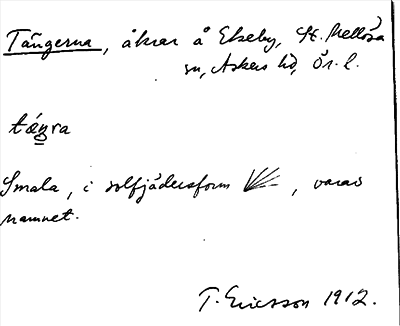 Tängerna, åkrar å Ekeby, St. Mellösa
sn, Askers hd, Ör. l.
táŋra
Smala, i solfjädersform , varav
namnet.
T. Ericsson 1912.